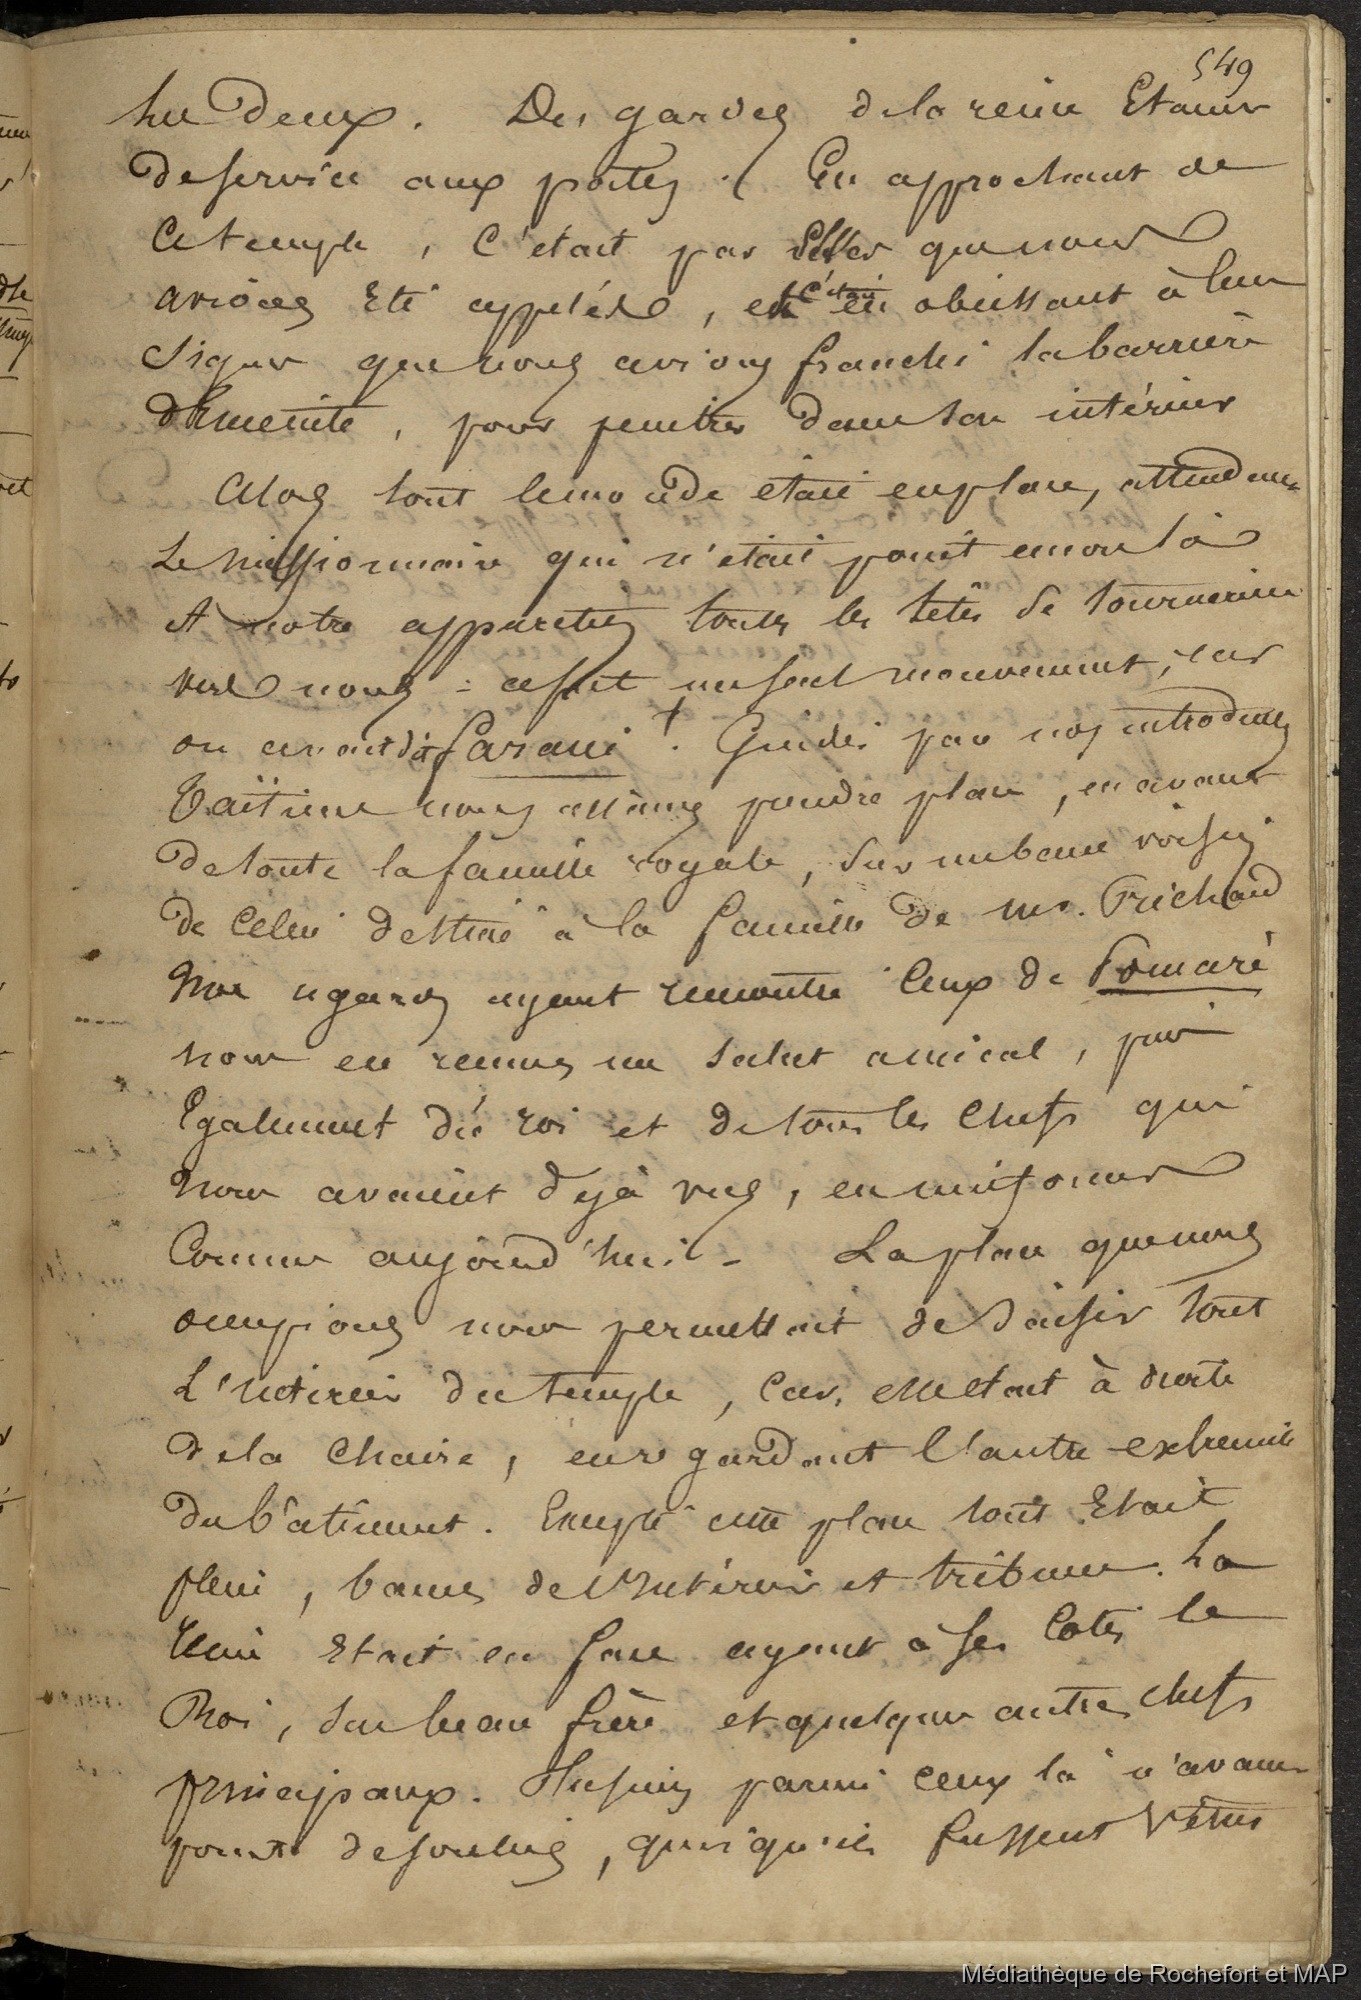 549
les Deux. Des gardes de la reine Etaient
de service aux portes. En approchant de
Ce temple, C'était par Elles que nous
avions Eté appelés, et c'était en obéissant à leur
Signe que nous avions franchi la barrière
d'Enceinte, pour penetrer dans son intérieur
Alors tout le monde était en place, attendant
Le Missionnaire qui n'était point encore là
A notre apparition toutes les têtes se tournerent
vers nous = ce fut un seul mouvement, car
on avait dit Farani +. Guidés par nos introducteurs
Taïtiens nous allâmes prendre place, en avant
de toute la famille royale, sur un banc voisin
de Celui destiné à la famille de Mr. Prichard
Nos regards ayant rencontré Ceux de Pomaré
nous en reçumes un salut amical, puis
Egalement du roi et de tous les Chefs qui
nous avaient déjà vus, en uniformes
Comme aujourd'hui - La place que nous
occupions nous permettait de Saisir tout
L'interieur du temple, Car, elle etait à droite
de la Chaire, en regardant l'autre extremité
du bâtiment. Excepté cette place tout Etait
plein, bancs de l'Interieur et tribunes. La
Reine Etait en face ayant à ses Cotés le
Roi, son beau frère et quelques autres chefs
principaux. Plusieurs parmi ceux là n'avaient
point de souliers, quoiqu'ils fussent Vétus
Médiathèque de Rochefort et MAP